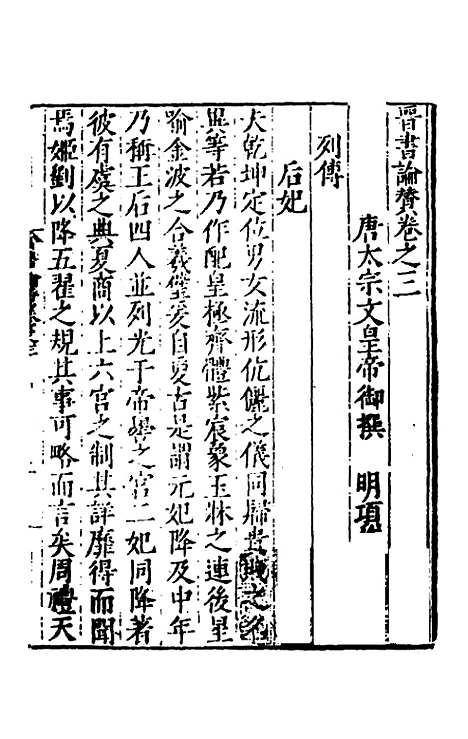 晉書論贊卷之三
唐太宗文皇帝御撰　明項
列傳
后妃
夫乾坤定位男女流形伉儷之儀同歸貴賤之名
異等若乃作配皇極齊體紫宸象玉牀之連後星
喻金波之合羲璧爰自夐古是謂元妃降及中年
乃稱王后四人並列光于帝嚳之宮二妃同降著
彼有虞之典夏商以上六宮之制其詳靡得而聞
焉姬劉以降五翟之規其事可略而言矣周禮天